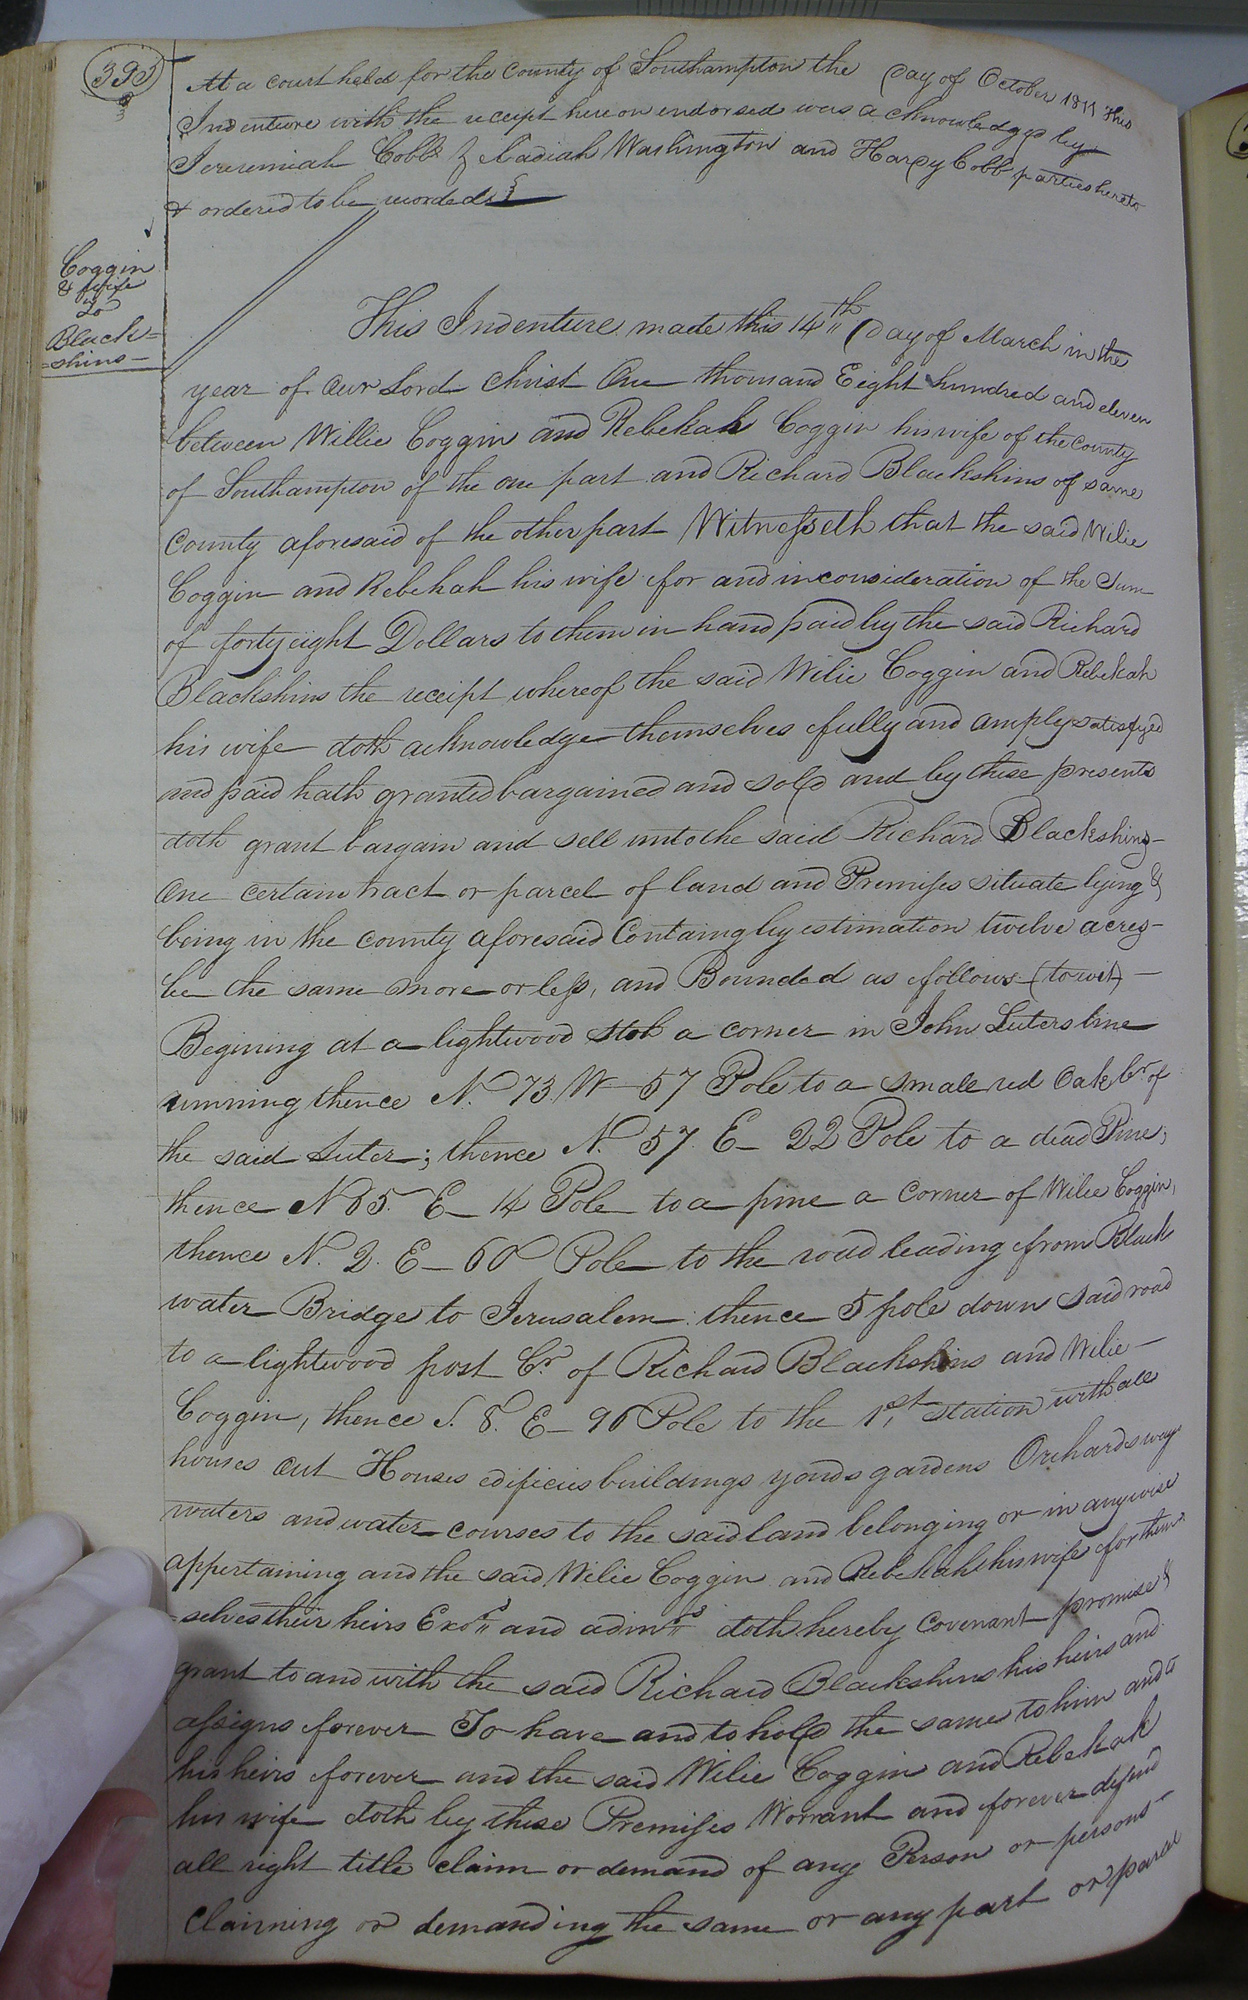 393
At a court held for the County of Southampton the day of October 1811 This
Indenture with the receipt hereon endorsed was acknowledged by
Jeremiah Cobb Zebadiah Washington and Hardy Cobb parties hereto
& ordered to be recorded
Coggin
& wife
To
Black=
=shins
This Indenture made this 14th Day of March in the
year of Our Lord Christ One thousand Eight hundred and eleven
between Willie Coggin and Rebekah Coggin his wife of the County
of Southampton of the one part and Richard Blackshins of same
County aforesaid of the other part Witnesseth that the said Wilie
Coggin and Rebekah his wife for and in consideration of the Sum
of forty eight Dollars to them in hand paid by the said Richard
Blackshins the receipt whereof the said Wilie Coggin and Rebekah
his wife doth acknowledge themselves fully and amply satisfyed
and paid hath granted bargained and sold and by these presents
doth grant bargain and sell unto the said Richard Blackshins
One certain tract or parcel of land and Premises situate lying &
being in the County aforesaid Containg by estimation twelve acres
be the same more or less, and Bounded as follows (towit)
Begining at a lightwood Stob a corner in John Luters line
running thence N. 73 W 57 Pole to a small red Oak Cr. of
the said Luter; thence N. 57 E 22 Pole to a dead Pine;
thence N 85. E 14 Pole to a pine a corner of Wilie Coggin,
thence N. 2. E 60 Pole to the road leading from Black
water Bridge to Jerusalem: thence 5 pole down said road
to a lightwood post Cr. of Richard Blackshins and Wilie
Coggin, thence S. 8. E 96 Pole to the 1st station with all
houses out Houses edificies buildings yards gardens Orchards ways
waters and water courses to the said land belonging or in any wise
appertaining and the said Wilie Coggin and Rebekah his wife for them
=selves their heirs Exors and admrs doth hereby covenant promise &
grant to and with the said Richard Blackshins his heirs and
assigns forever To have and to hold the same to him and to
his heirs forever and the said Wilie Coggin and Rebekah
his wife doth by these Premises Worrant and forever defend
all right title claim or demand of any Person or persons
Claiming or demanding the same or any part or parcel